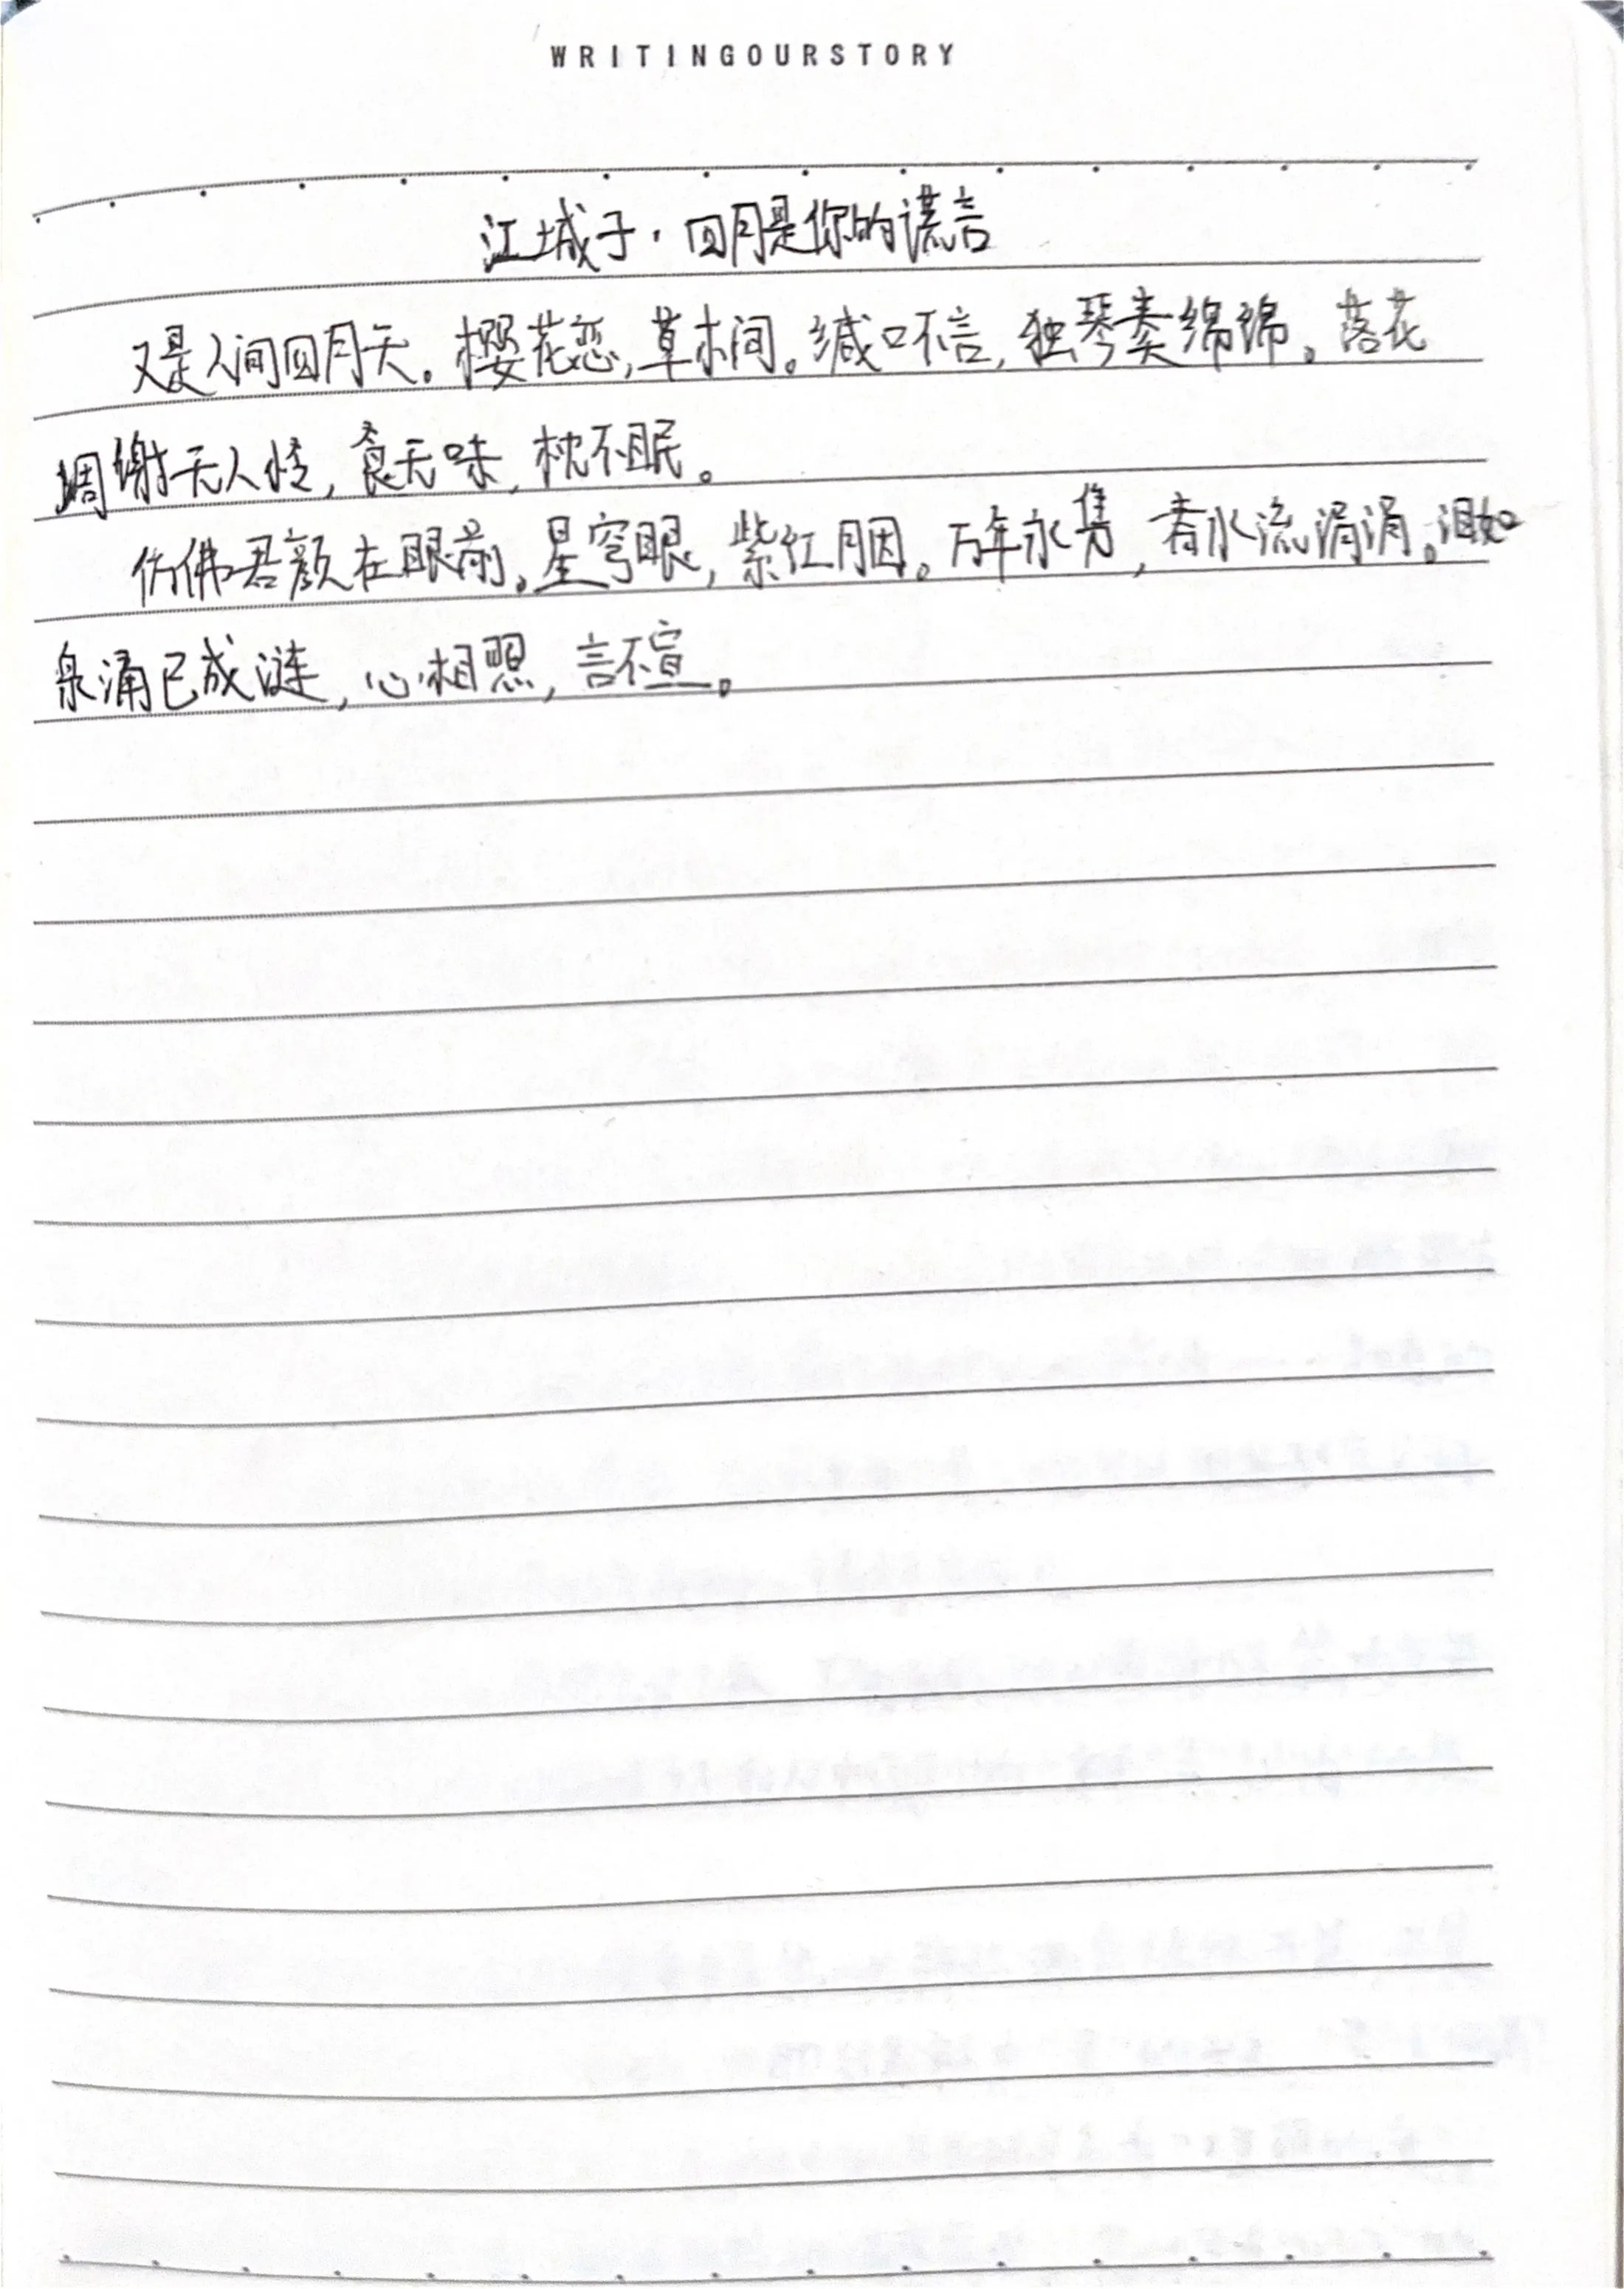 WRITINGOURSTORY
江城子·四月是你的谎言
又是人间四月天。樱花恋,草木间。缄口不言,独琴奏绵绵。落花
凋谢无人怪,食无味,枕不眠。
仿佛君颜在眼前。星穹眼,紫红胭。万年永隽,春水流涓涓。泪如
泉涌已成涟,心相照,言不宣。